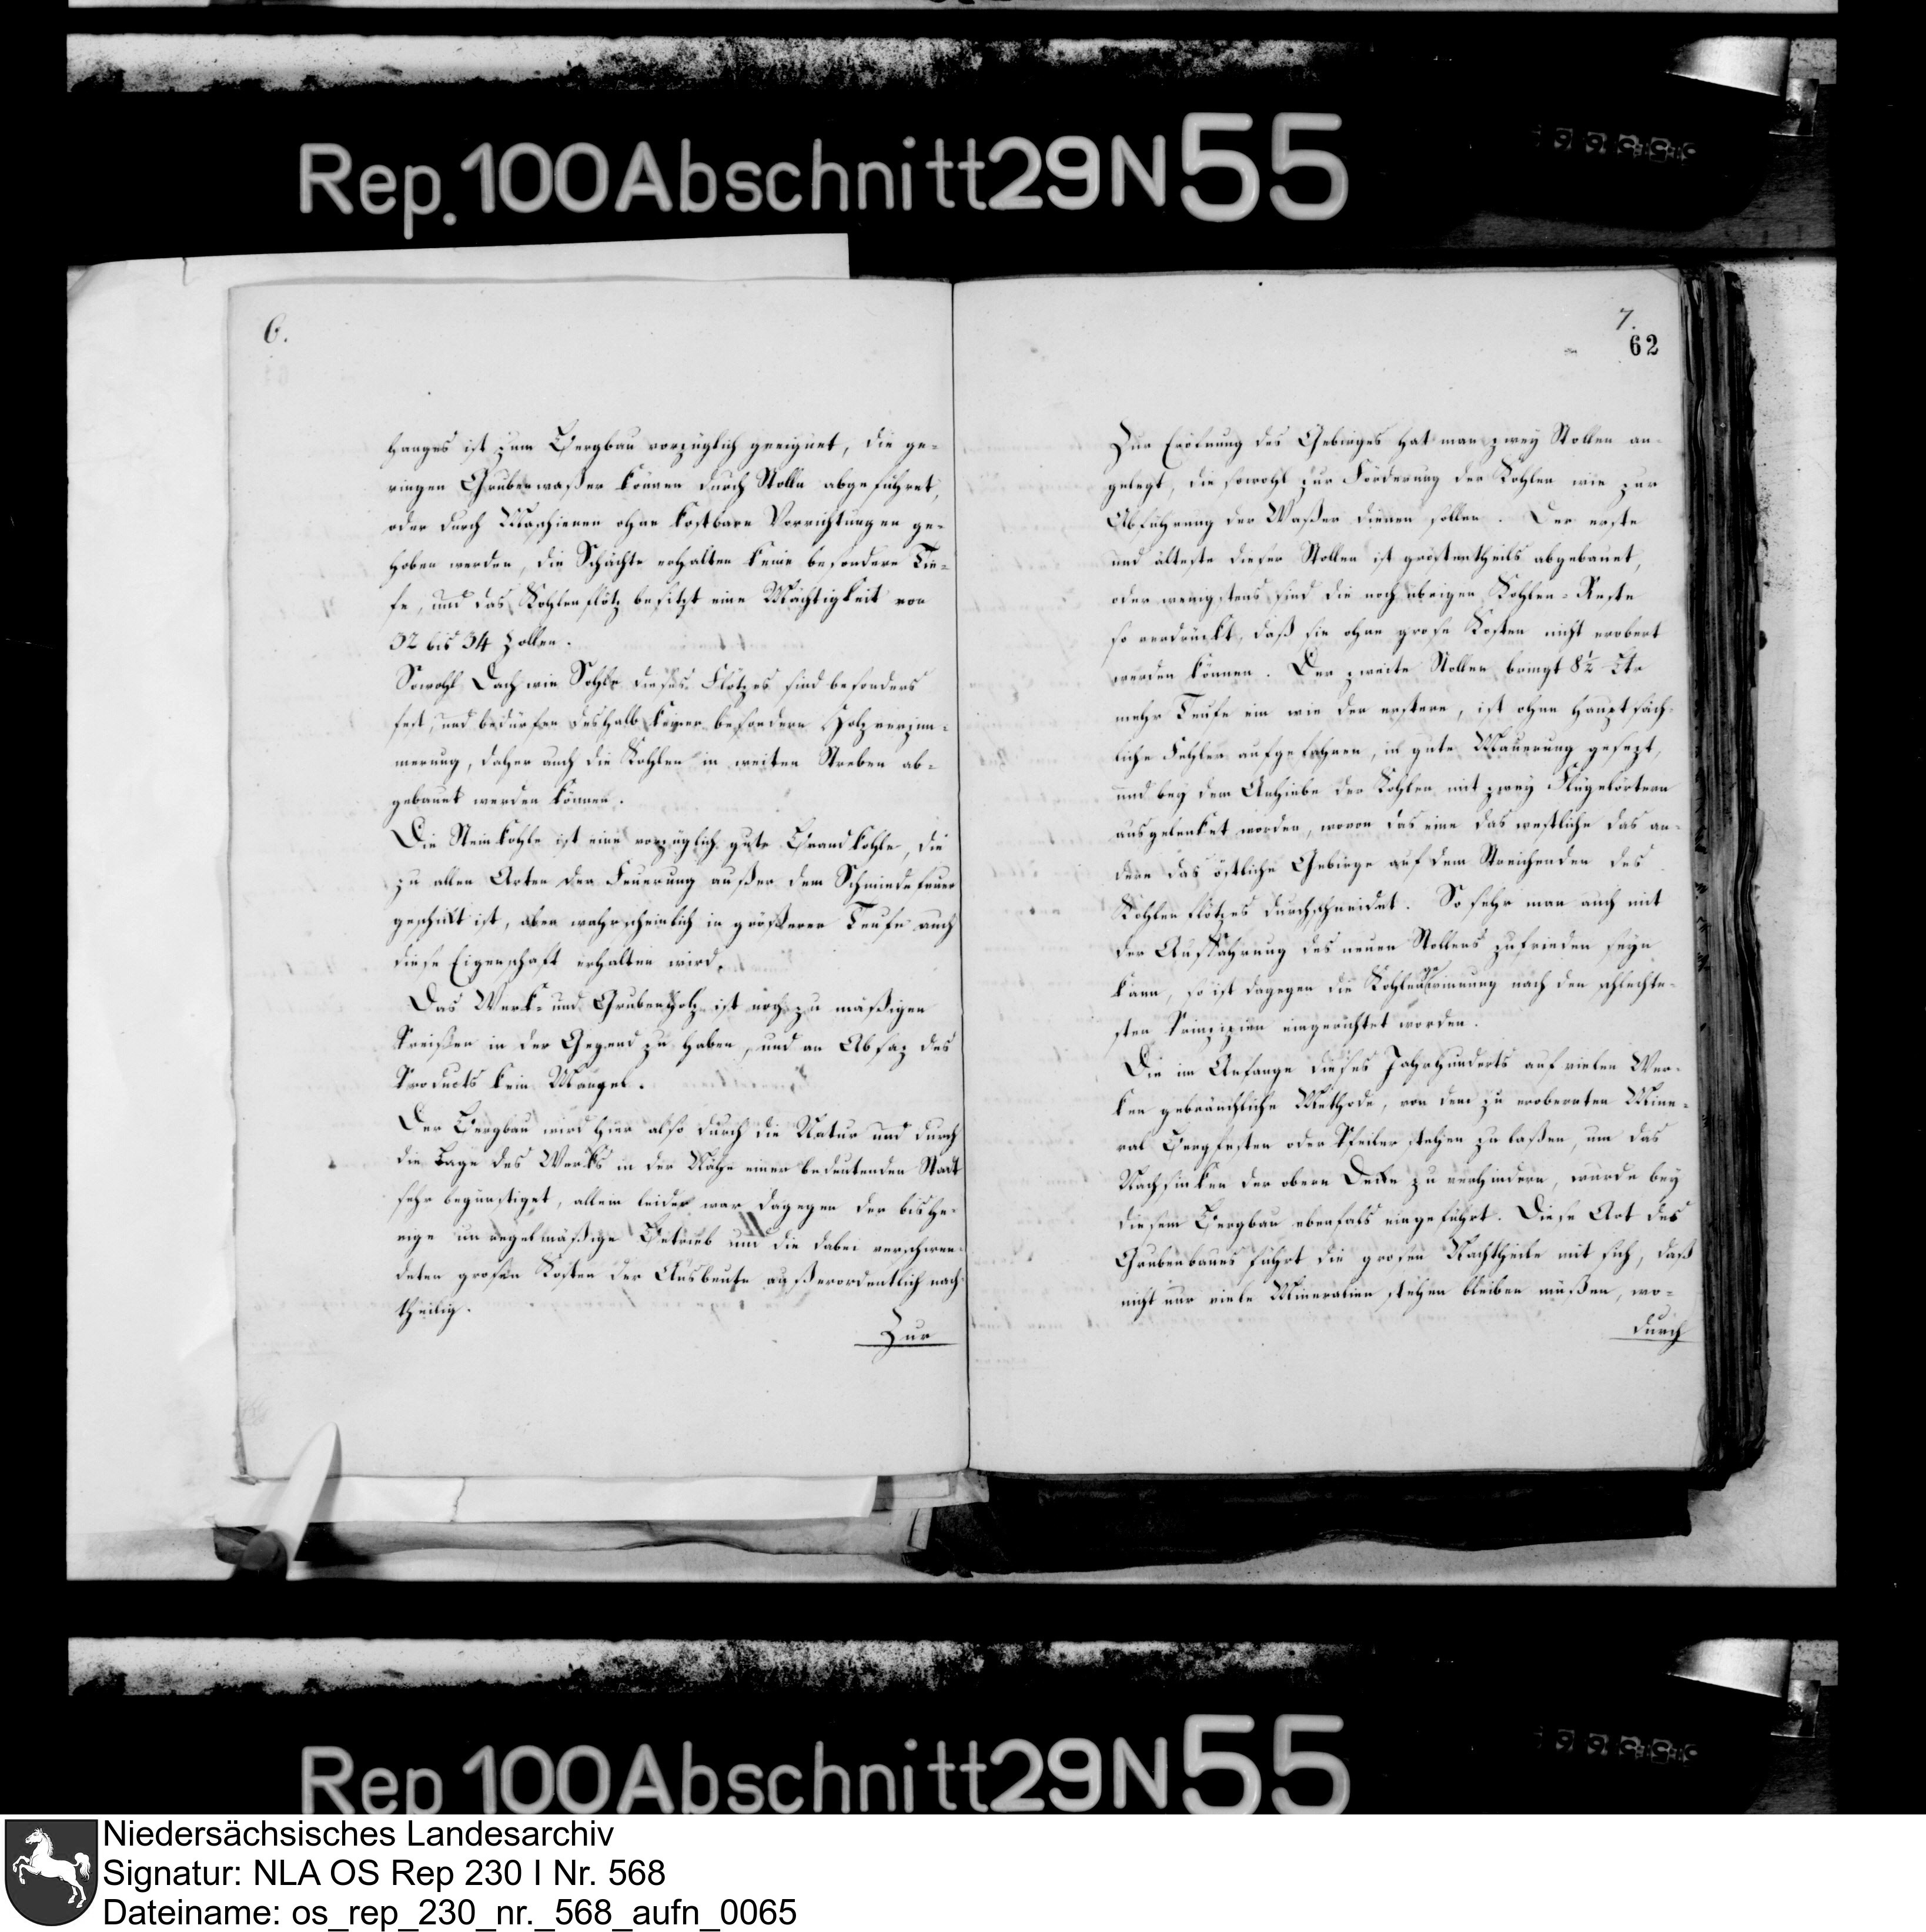 Rep. 100 Abschnitt 29 N 55
6.
hanges ist zum Bergbau vorzüglich geeignet, die ge-
ringen Grubenwaßer können durch Stolln abgeführet,
oder durch Maschienen ohne kostbare Vorrichtungen ge-
hoben werden, die Schächte erhalten keine besondere Tie-
fe, und das Kohlenflötz besitzt eine Mächtigkeit von
32 bis 34 Zollen.
Sowohl Dach wie Sohle dieses Flötzes sind besonders
fest, und bedürfen deshalb keiner besondern Holzverzim-
merung, daher auch die Kohlen in weiten Streben ab-
gebauet werden können.
Die Steinkohle ist eine vorzüglich gute Brandkohle, die
zu allen Arten der Feuerung außer dem Schmiedefeuer
geschikt ist, aber wahrscheinlich in größerer Teufe auch
diese Eigenschaft erhalten wird.
Das Werk- und Grubenholz ist noch zu mäßigen
Preißen in der Gegend zu haben, und an Absaz des
Products kein Mangel.
Der Bergbau wird hier also durch die Natur und durch
die Lage des Werks in der Nähe einer bedeutenden Stadt
sehr begünstiget, allein leider war dagegen der bishe-
rige unregelmäßige Betrieb und die dabei verschwen-
deten großen Kosten der Ausbeute außerordentlich nach-
theilig.
Zur
7.
62
Zur Eröfnung des Gebirges hat man zwey Stollen an-
gelegt, die sowohl zur Förderung der Kohlen wie zur
Abführung der Waßer dienen sollen. Der erste
und älteste dieser Stollen ist gröstentheils abgebauet,
oder wenigstens sind die noch übrigen Kohlen-Reste
so verdrückt, daß sie ohne grose Kosten nicht erobert
werden können. Der zweite Stollen bringt 8½ Ltr
mehr Teufe ein wie der erstere, ist ohne hauptsäch-
liche Fehler aufgefahren, in gute Mauerung gesezt,
und bey dem Anhiebe der Kohlen mit zwey Flügelörtern
ausgelenket worden, wovon das eine das westliche das an-
dere das östliche Gebirge auf dem Streichenden des
Kohlenflötzes durchschneidet. So sehr man auch mit
der Auffahrung des neuen Stollens zufrieden seyn
kann, so ist dagegen die Kohlengewinnung nach den schlechte-
sten Prinzipien eingerichtet worden.
Die im Anfange dieses Jahrhunderts auf vielen Wer-
ken gebräuchliche Methode, von dem zu erobernten Mine-
ral Bergfesten oder Pfeiler stehen zu laßen, um das
Nachsinken der obern Decke zu verhindern, wurde bey
diesem Bergbau ebenfals eingeführt. Diese Art des
Grubenbaues führt die grosen Nachtheile mit sich, daß
nicht nur viele Mineralien stehen bleiben müßen, wo-
durch
Rep 100 Abschnitt 29 N 55
Niedersächsisches Landesarchiv
Signatur: NLA OS Rep 230 I Nr. 568
Dateiname: os_rep_230_nr._568_aufn_0065